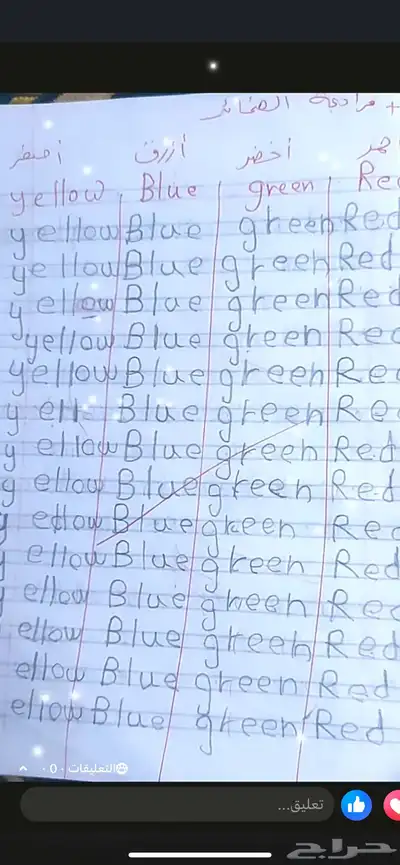 + مراجعة الضمائر
أحمر أخضر أزرق أصفر
yellow Blue green Red
yellow Blue green Red
yellow Blue green Red
yellow Blue green Red
yellow Blue green Red
yellow Blue green Re
yell Blue green Re
yellow Blue green Red
yellow Blue green Red
yellow Blue green Red
ellow Blue green Red
ellow Blue green Red
ellow Blue green Red
ellow Blue green Red
ellow Blue green Red
التعليقات ٠ 0
تعليق...
حراج